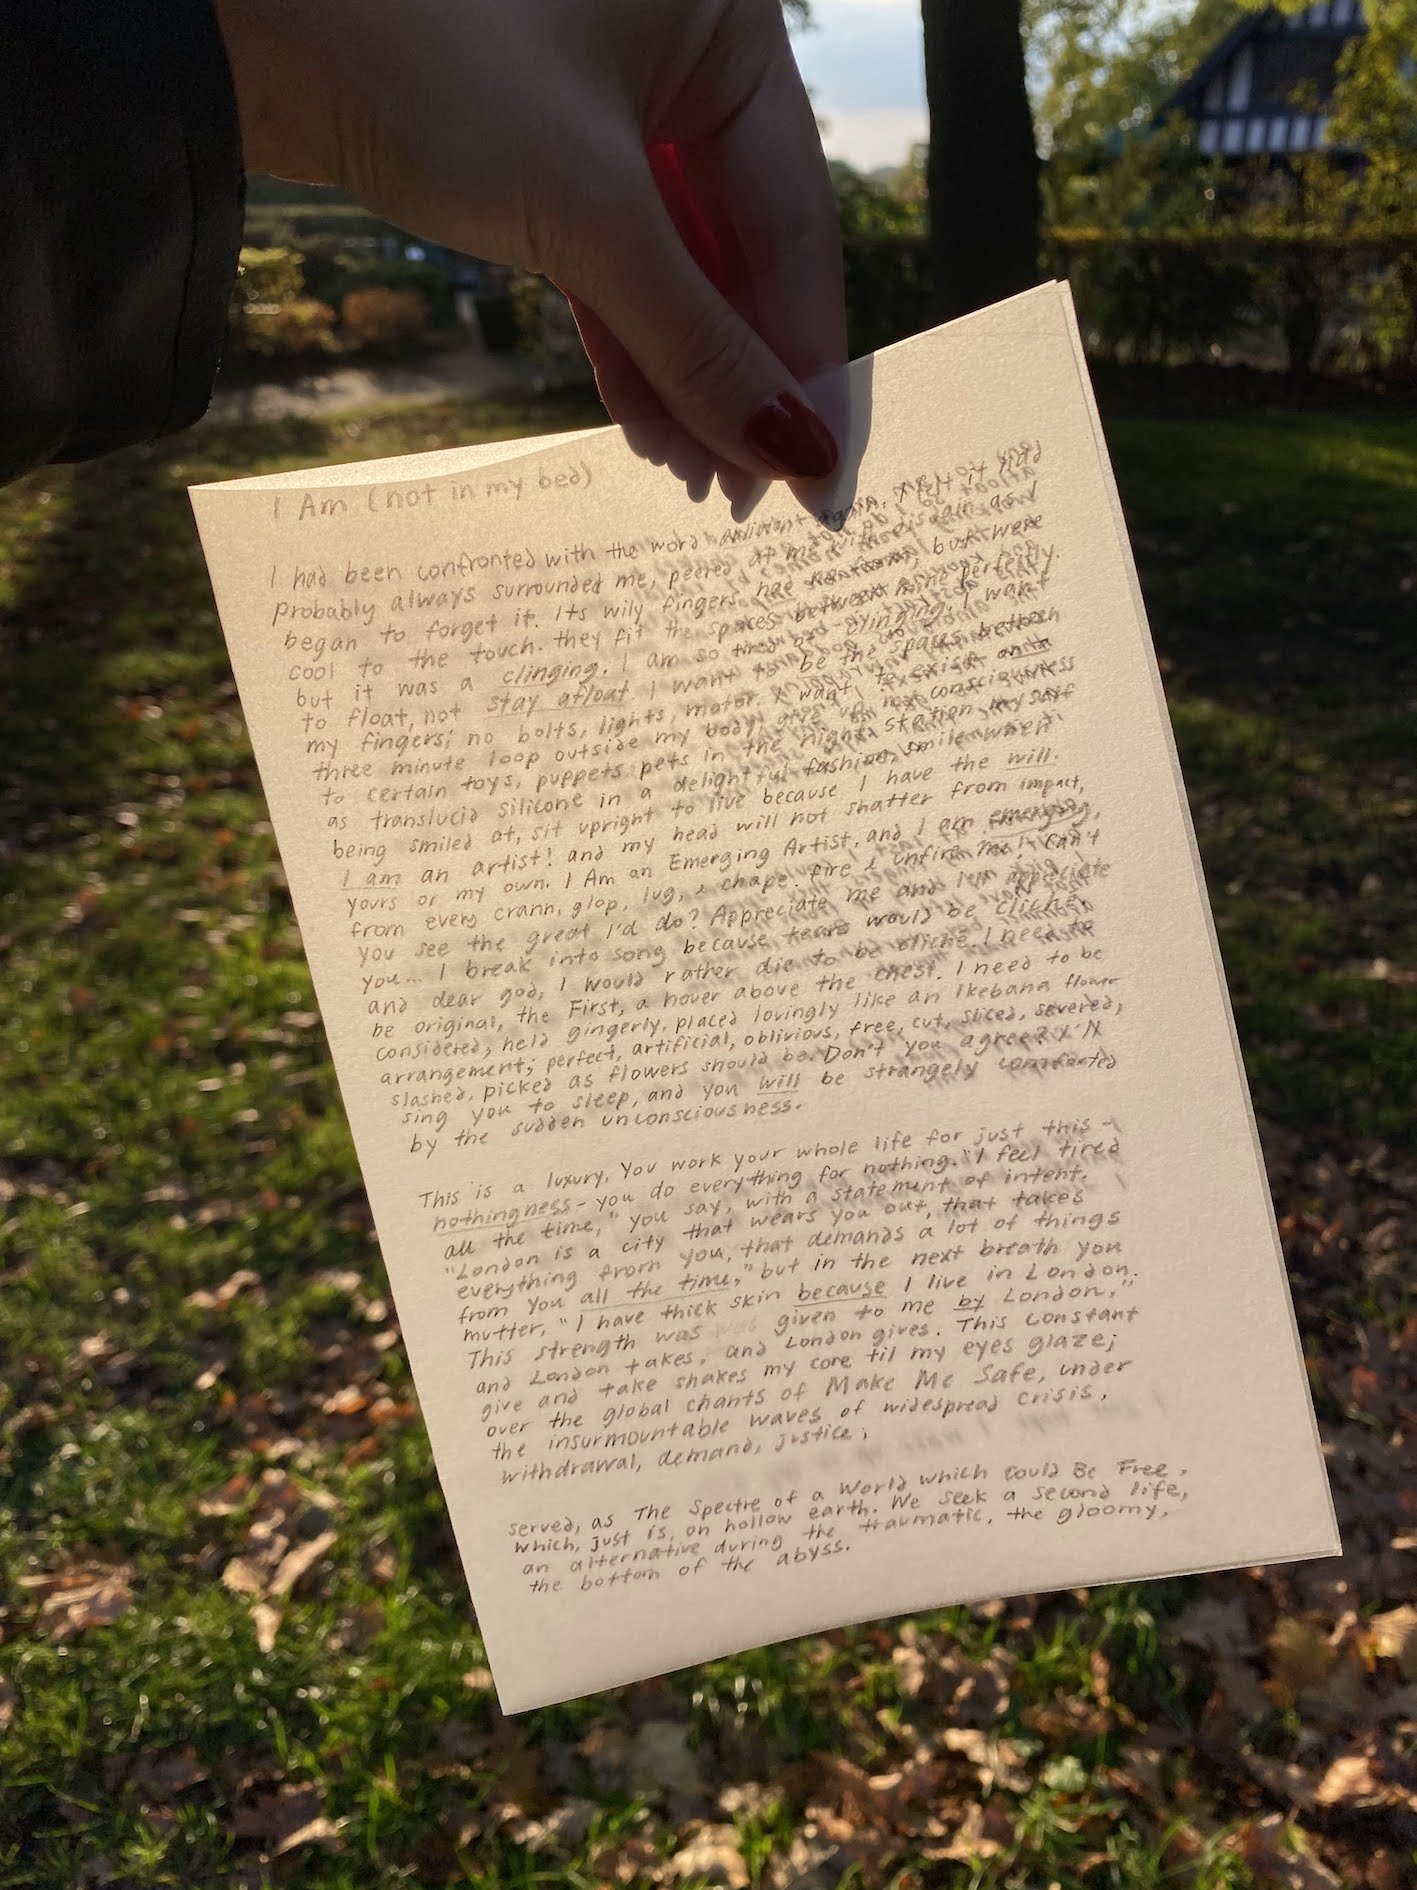 I Am (not in my bed)
I had been confronted with the word again. it had
probably always surrounded me, peered at me with disdain as I
began to forget it. Its wily fingers had but were
cool to the touch. they fit the spaces between mine perfectly.
but it was a clinging. I am so tired of clinging. I want
to float, not stay afloat. I want to be the spaces between
my fingers; no bolts, lights, motor. I want to exist on a
three minute loop outside my body, give up my consciousness
to certain toys, puppets pets in the night, station myself
as translucid silicone in a delightful fashion, smile when
being smiled at, sit upright to live because I have the will.
I am an artist! and my head will not shatter from impact,
yours or my own. I Am an Emerging Artist, and I am emerging,
from every crann, glop, lug, & chape. fire & unfire me! Can't
you see the great I'd do? Appreciate me and I'll appreciate
you... I break into song because tears would be cliche,
and dear god, I would rather die to be cliche. I need to
be original, the First, a hover above the chest. I need to be
considered, held gingerly. placed lovingly like an Ikebana flower
arrangement; perfect, artificial, oblivious, free, cut, sliced, severed,
slashed, picked as flowers should be. Don't you agree? I'll
sing you to sleep, and you will be strangely comforted
by the sudden unconsciousness.
This is a luxury. You work your whole life for just this -
nothingness - you do everything for nothing. "I feel tired
all the time," you say, with a statement of intent.
"London is a city that wears you out, that takes
everything from you, that demands a lot of things
from you all the time," but in the next breath you
mutter, "I have thick skin because I live in London.
This strength was given to me by London,"
and London takes, and London gives. This constant
give and take shakes my core til my eyes glaze;
over the global chants of Make Me Safe, under
the insurmountable waves of widespread crisis,
withdrawal, demand, justice;
served, as The Spectre of a World which Could Be Free,
which, just is, on hollow earth. We seek a second life,
an alternative during the traumatic, the gloomy,
the bottom of the abyss.